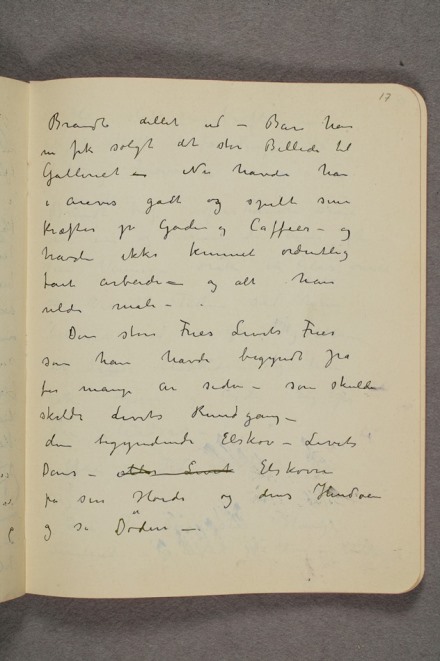 17
Brandt dillet ud – Bare han
nu fik solgt det store Billede til
Galleriet – Nu havde han
i årevis gått og spilt sine
Kræfter på Gaden og Caffeer – og
havde ikke kunnet ordentlig
tat arbeide – og alt han
vilde male –
Den store Fries Livets Fries
som han havde begyndt på
for mange år siden – som skulde
skildre Livets Rundgang –
den begyndende Elskov – Livets
Dans – Elskoven
på sin Høide og dens
og så Døden –